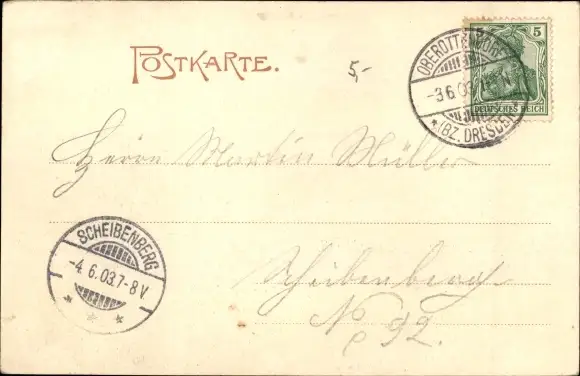 POSTKARTE.
5,-
OBEROTTENDORF
-3 6.03
*(BZ. DRESDEN)*
5
DEUTSCHES REICH
Herrn Martin Müller
SCHEIBENBERG
-4.6.03.7-8V.
* * *
Scheibenberg
No 92.